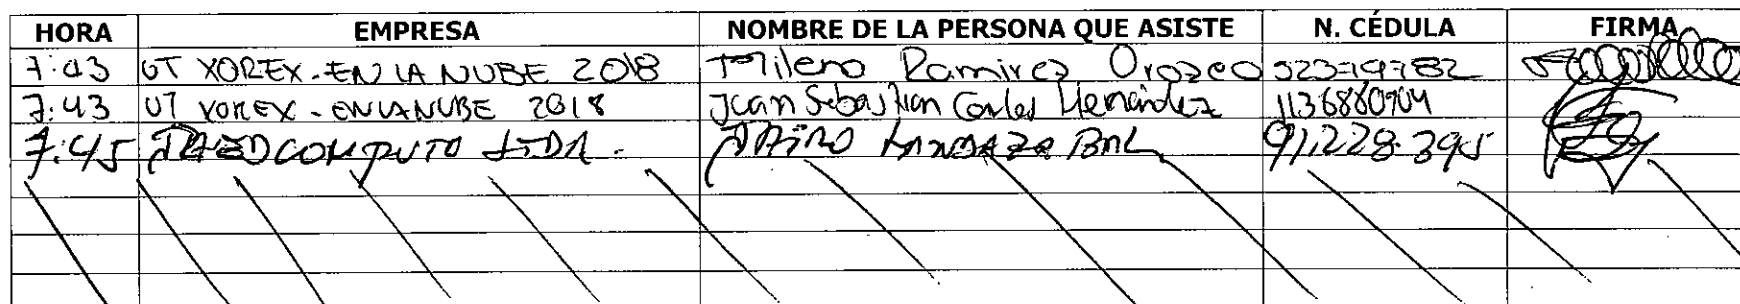 HORA EMPRESA NOMBRE DE LA PERSONA QUE ASISTE N. CÉDULA FIRMA
7:43 UT XOREX-EN LA NUBE 2018 Milena Ramirez Orozco
7:43 UT XOREX-EN LA NUBE 2018 Juan Sebastian Hernández 1136880704
7:45 COMPUTO LTDA. 91.228.395